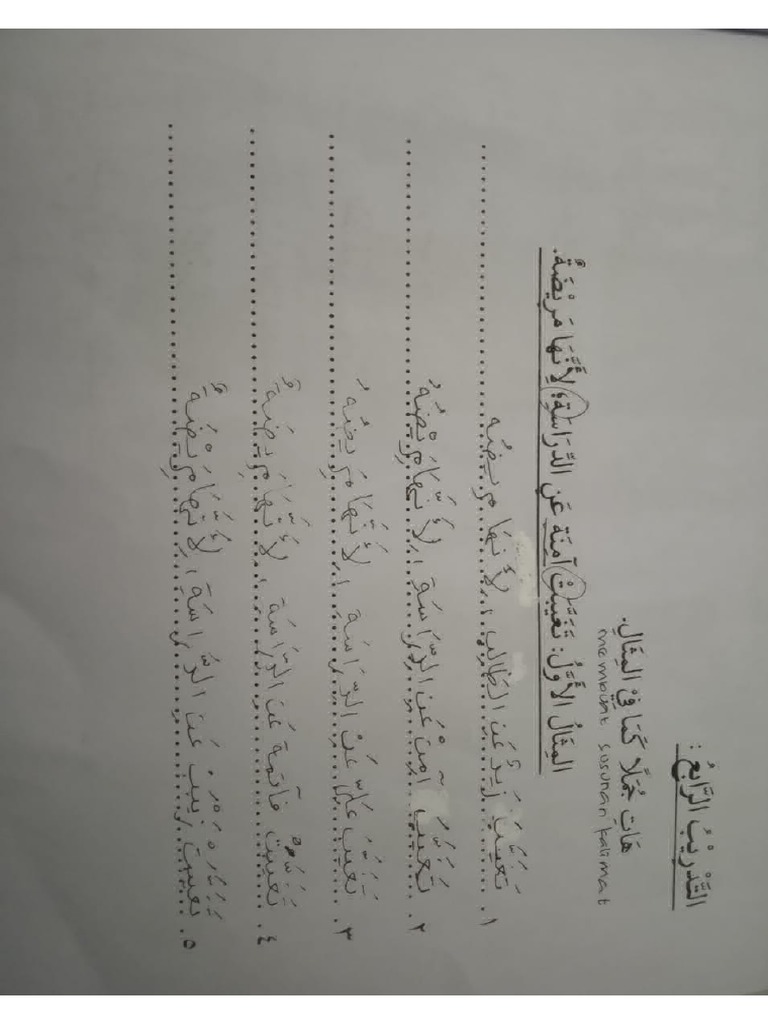 التَّدْرِيْبُ الرَّابِعُ :
هَاتِ جُمَلًا كَمَا فِيْ المِثَالِ.
membuat susunan kalimat
المِثَالُ الأَوَّلُ: تَغَيَّبَتْ آمِنَة عَنِ الدِّرَاسَةِ؛ لِأَنَّهَا مَرِيْضَةٌ.
١. تَغَيَّبَ زَيدٌ عَن الطَّالِب، لأَنهَا مريضُه
٢. تَغَيَّبَ آمِنْ عَن الدِّرَاسَةِ، لِأَنَّهَا مَرِيْضَهُ
٣. تَغَيَّبَ عَلِيّ عَنْ الدِّرَاسَة، لأَنَّهَا مَرِيضَهُ
٤. تَغَيَّبَتْ فَاتِمَة عَن الدِّرَاسَةِ، لِأَنَّهَا مَرِيضَةٌ
٥. تَغَيَّبَتْ زَيْنَبْ عَن الدِّرَاسَةِ، لِأَنَّهَا مَرِيْضَةٌ